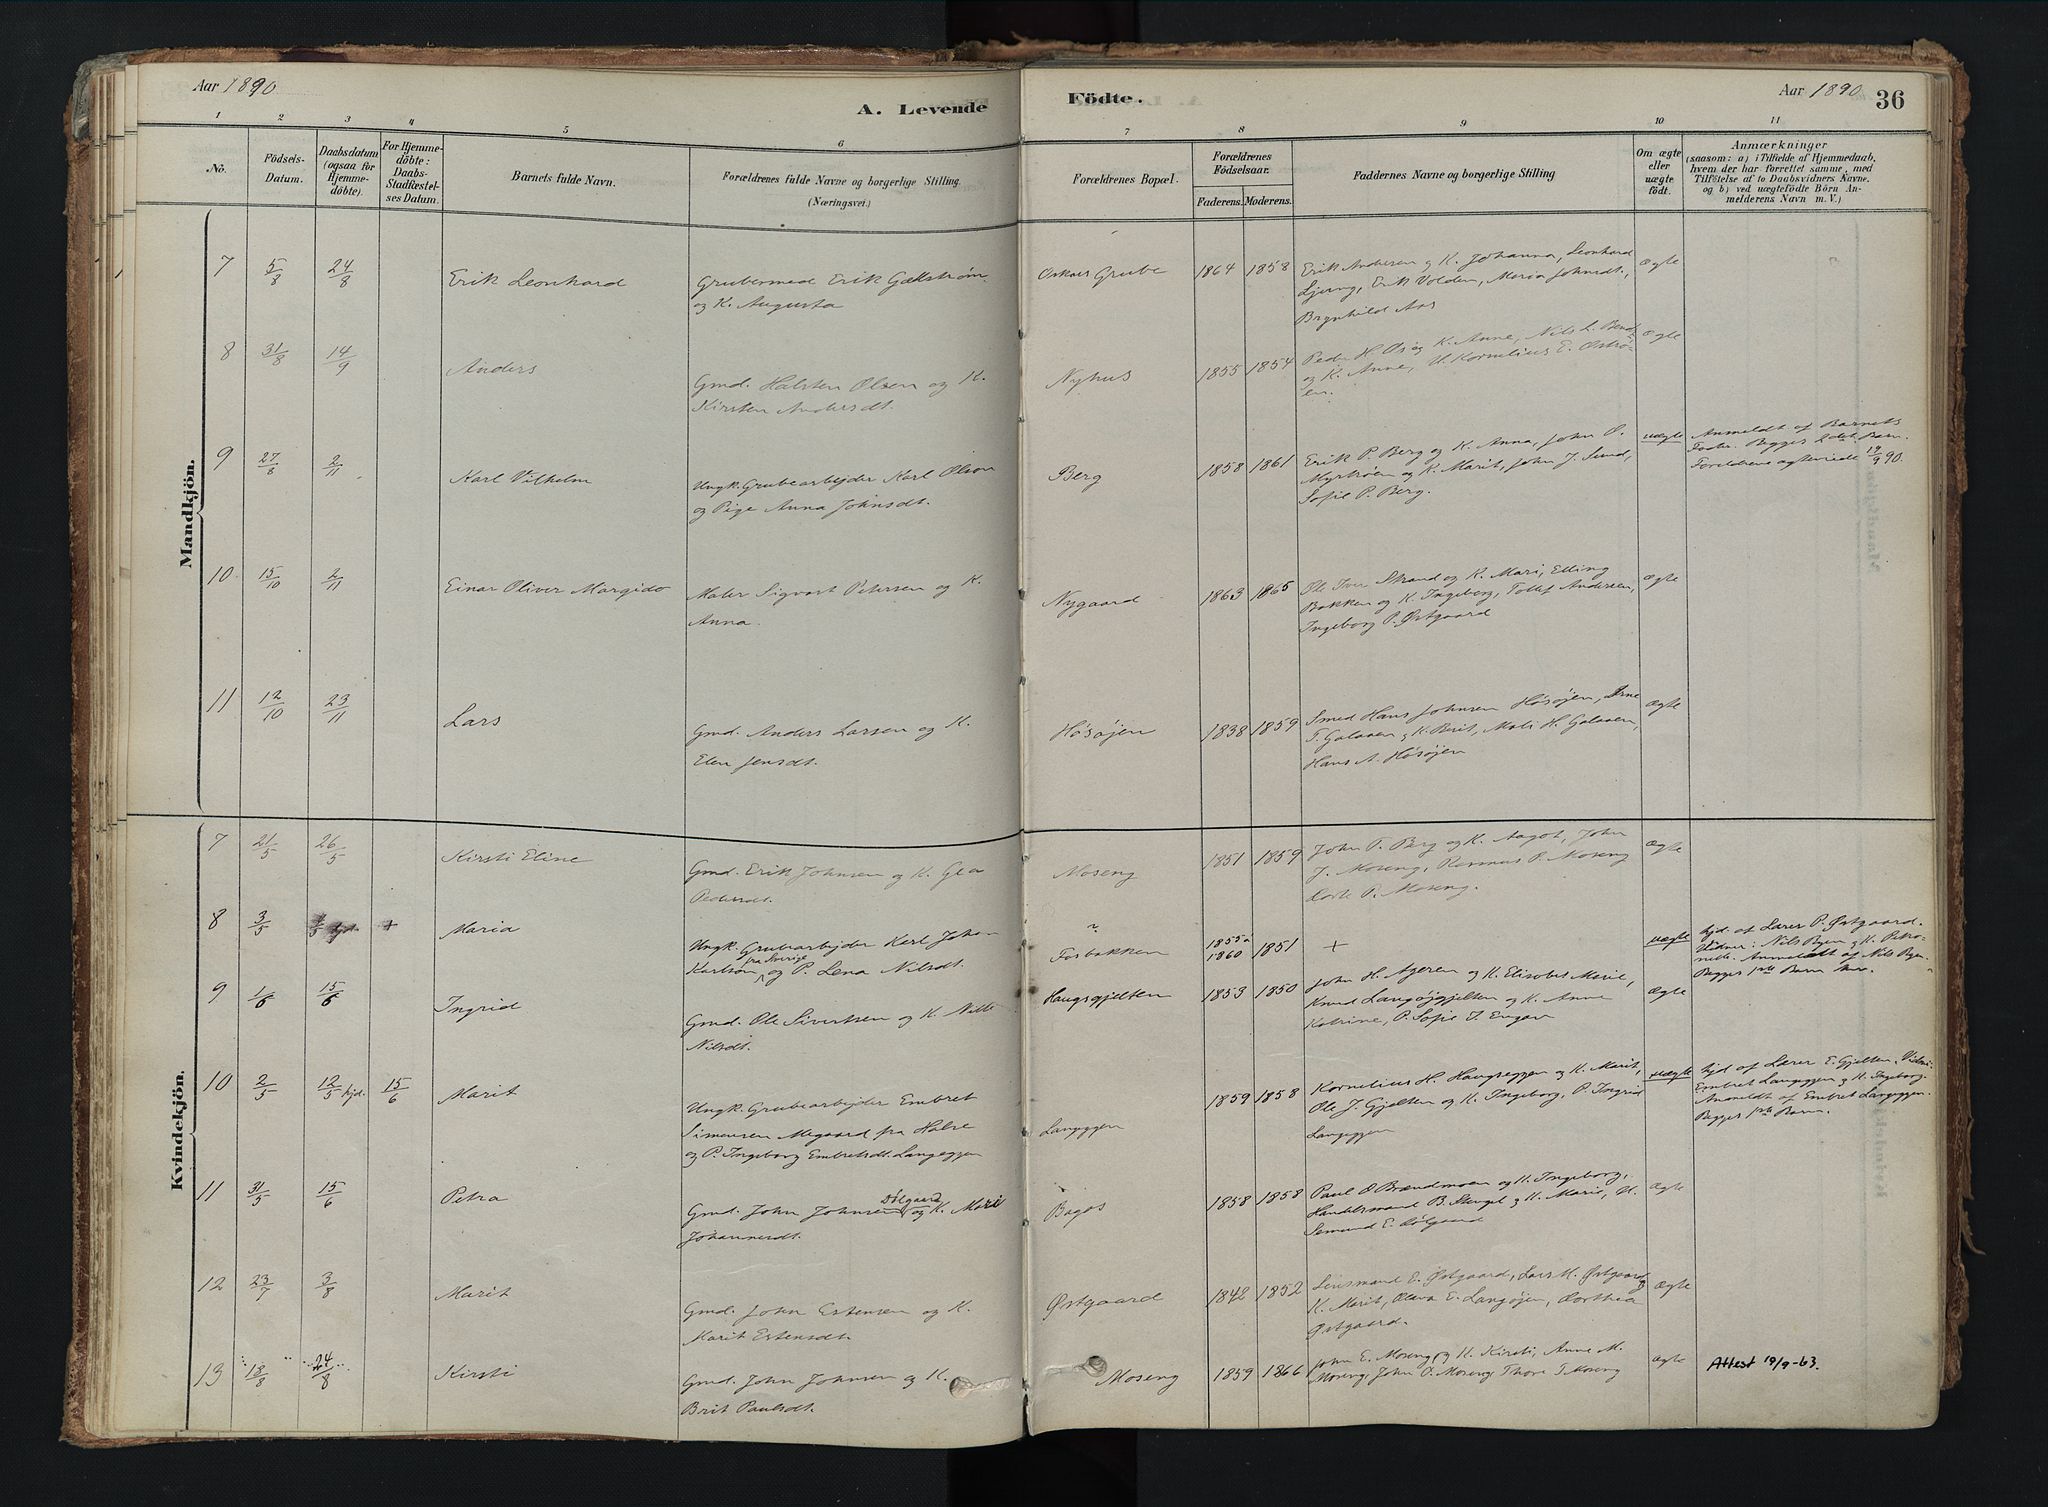 Aar 1890
A. Levende
Födte.
Aar 1890
36
1 2 3 4 5 6 7 8 9 10 11
No.
Födsels-
Datum.
Daabsdatum
(ogsaa for
Hjemme-
döbte).
For Hjemme-
döbte:
Daabs-
Stadfæstel-
ses Datum.
Barnets fulde Navn.
Forældrenes fulde Navne og borgerlige Stilling.
(Næringsvei.)
Forældrenes Bopæl.
Forældrenes
Födselsaar.
Faderens. Moderens.
Faddernes Navne og borgerlige Stilling
Om ægte
eller
uægte
födt.
Anmærkninger
(saasom: a) i Tilfælde af Hjemmedaab,
hvem der har forrettet samme, med
Tilföielse af to Daabsvidners Navne.
og b) ved uægtefödte Börn An-
melderens Navn m. V.)
Mandkjön.
7 5/8 24/8 Erik Leonhard
Grubesmed Erik
og K. Augusta
Oskars Grube 1864 1858
Erik Andersen og K. Johanna, Leonhard
Ljung, Erik Volden, Maria Johnsdt.,
Brynhild Aas
ægte
8 31/8 14/9 Anders
Gmd. Halsten Olsen og K.
Kirsten Andersdt.
Nyhus 1855 1854
Peder H. Os og K. Anne, Nils L.
og K. Anne, U. Kornelius E.
en.
ægte
9 27/8 2/11 Karl Vilhelm
Ungk. Grubearbejder Karl Olsen
og Pige Anna Johnsdt.
Berg 1858 1861
Erik P. Berg og K. Anna, John O.
Myrtrøen og K. Marit, John J. Sund,
Sofie P. Berg.
uægte
Anmeldt af Barnets
Fader. Begges 2det Barn.
Forældrene ægteviede 14/9 90.
10 15/10 2/11 Einar Oliver Margido
Maler Sigvart Petersen og K.
Anna.
Nygaard 1863 1865
Ole Iver Strand og K. Mari, Elling
Bakken og K. Ingeborg, Tollef Andersen,
Ingeborg P. Østgaard
ægte
11 12/10 23/11 Lars
Gmd. Anders Larsen og K.
Elen Jensdt.
Høsøjen 1838 1859
Smed Hans Johnsen Høsøjen, Arne
T. Galaaen og K. Berit, Mali H. Galaaen,
Hans A. Høsøjen
ægte
Kvindekjön.
7 21/5 26/5 Kirsti Eline
Gmd. Erik Johnsen og K.
Pedersdt.
Moseng 1851 1859
John T. Berg og K. Aagot, John
J. Moseng, Rasmus P. Moseng
Dorte P. Moseng.
ægte
8 3/5 hjd. + Maria
Ungk. Grubearbejder Karl Johan
Karlsøn fra Sverige og P. Lena Nilsdt.
Fosbakken 1855 a 1860 1851
+
uægte
hjd. af Lærer P. Østgaard.
Vidner: Nils Byen og K. Petro-
nelle. Anmeldt af Nils Byen.
Begges 1ste Barn
9 1/6 15/6 Ingrid
Gmd. Ole Sivertsen og K.
Nilsdt.
Haugsgjelten 1853 1850
John H. Ageren og K. Elisabet Marie,
Knud Langøjgjelten og K. Anne
Katrine, P. Sofie I. Engan
ægte
10 2/5 12/5 hjd. 15/6 Marit
Ungk. Grubearbejder Embret
Simensen Megaard fra Halse
og P. Ingeborg Embretsdt. Langeggen
Langeggen 1859 1858
Kornelius H. Haugseggen og K. Marit,
Ole J. Gjelten og K. Ingeborg, P. Ingrid
Langeggen
uægte
hjd af Lærer E. Gjelten. Vidner:
Embret Langeggen og K. Ingeborg.
Anmeldt af Embret Langeggen.
Begges 1ste Barn.
11 31/5 15/6 Petra
Gmd. John Johnsen Dølgaard og K. Mari
Johannesdt.
Bagos 1858 1858
Paul O Brændmoen og K. Ingeborg,
Handelsmand B. Stengel og K. Marie, U.
Semund E. Dølgaard
ægte
12 23/7 3/8 Marit
Gmd. John Estensen og K.
Marit Estensdt.
Østgaard 1842 1852
Lensmand E. Østgaard, Lars M. Østgaard og
K. Marit, Olava E. Langøjen, Dorthea
Østgaard.
ægte
13 18/8 24/8 Kirsti
Gmd. John Johnsen og K.
Brit Paulsdt.
Moseng 1859 1866
John E. Moseng og K. Kirsti, Anne M.
Moseng, John O. Moseng, Thore T Moseng
ægte
Attest 19/9-63.